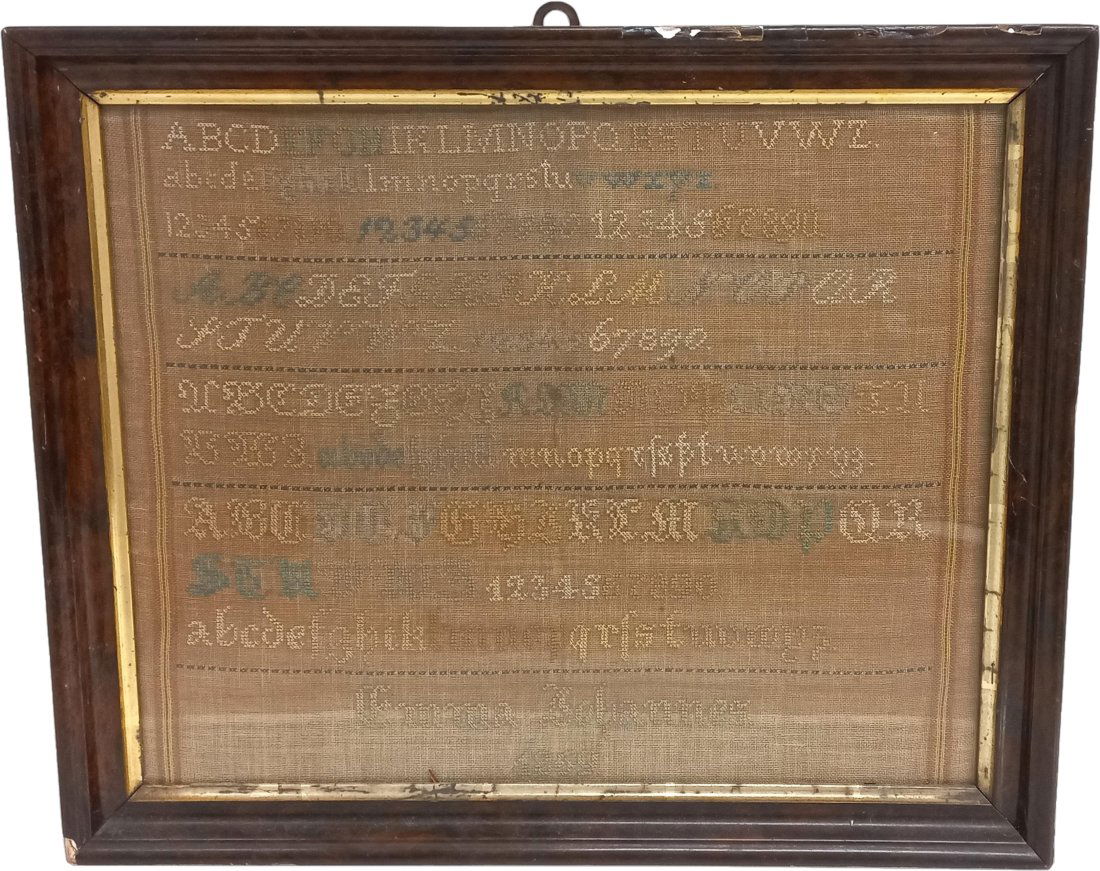 ABCDEFGHIKLMNOPQRSTUVWZ.
abcdefghiklmnopqrstuvwxyz
1234567890. 1234567890 1234567890
ABCDEFGHIKLMNOPQR
STUVWZ. 1234567890.
ABCDEFGHIKLMNOPQRSTU
VWZ. abcdefghiklmnopqrſsßtuvwxyz.
ABCDEFGHIKLMNOPQR
STUVWZ 1234567890
abcdefghiklmnopqrſstuvwxyz.
Emma Johannes